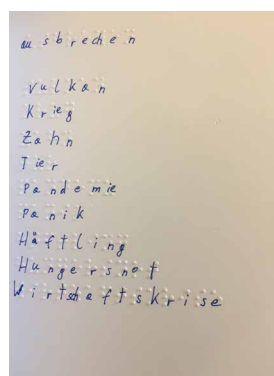 ausbrechen
Vulkan
Krieg
Zahn
Tier
Pandemie
Panik
Häftling
Hungersnot
Wirtschaftskrise